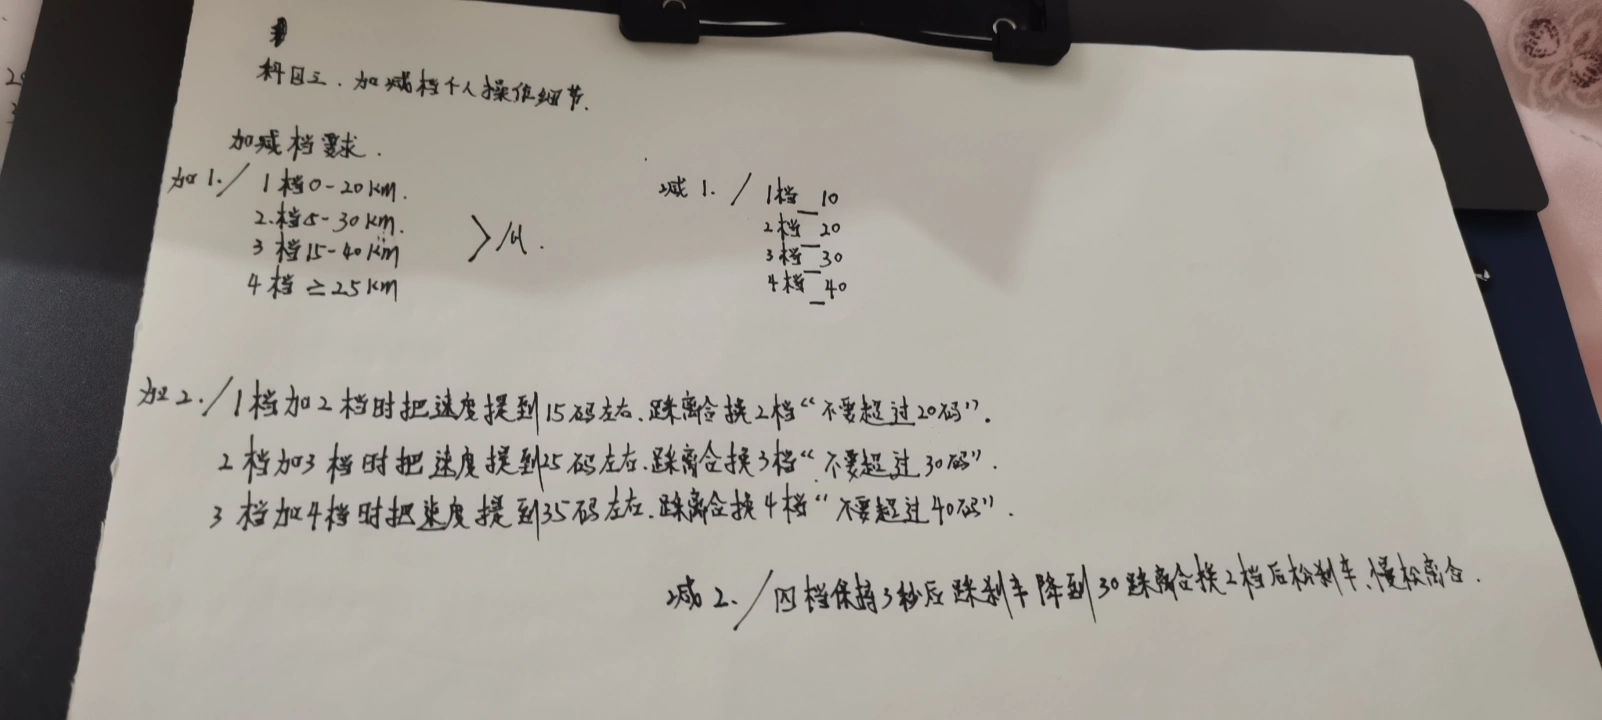 科目三.加减档个人操作细节.
加减档要求.
加1./ 1档0-20km.
2.档5-30km.
3档15-40km
4档≥25km
>/H.
减1./ 1档_10
2档_20
3档_30
4档_40
加2./1档加2档时把速度提到15码左右.踩离合换2档“不要超过20码”.
2档加3档时把速度提到25码左右.踩离合换3档“不要超过30码”.
3档加4档时把速度提到35码左右.踩离合换4档“不要超过40码”.
减2./四档保持3秒后踩刹车降到30踩离合换2档后松刹车、慢松离合.